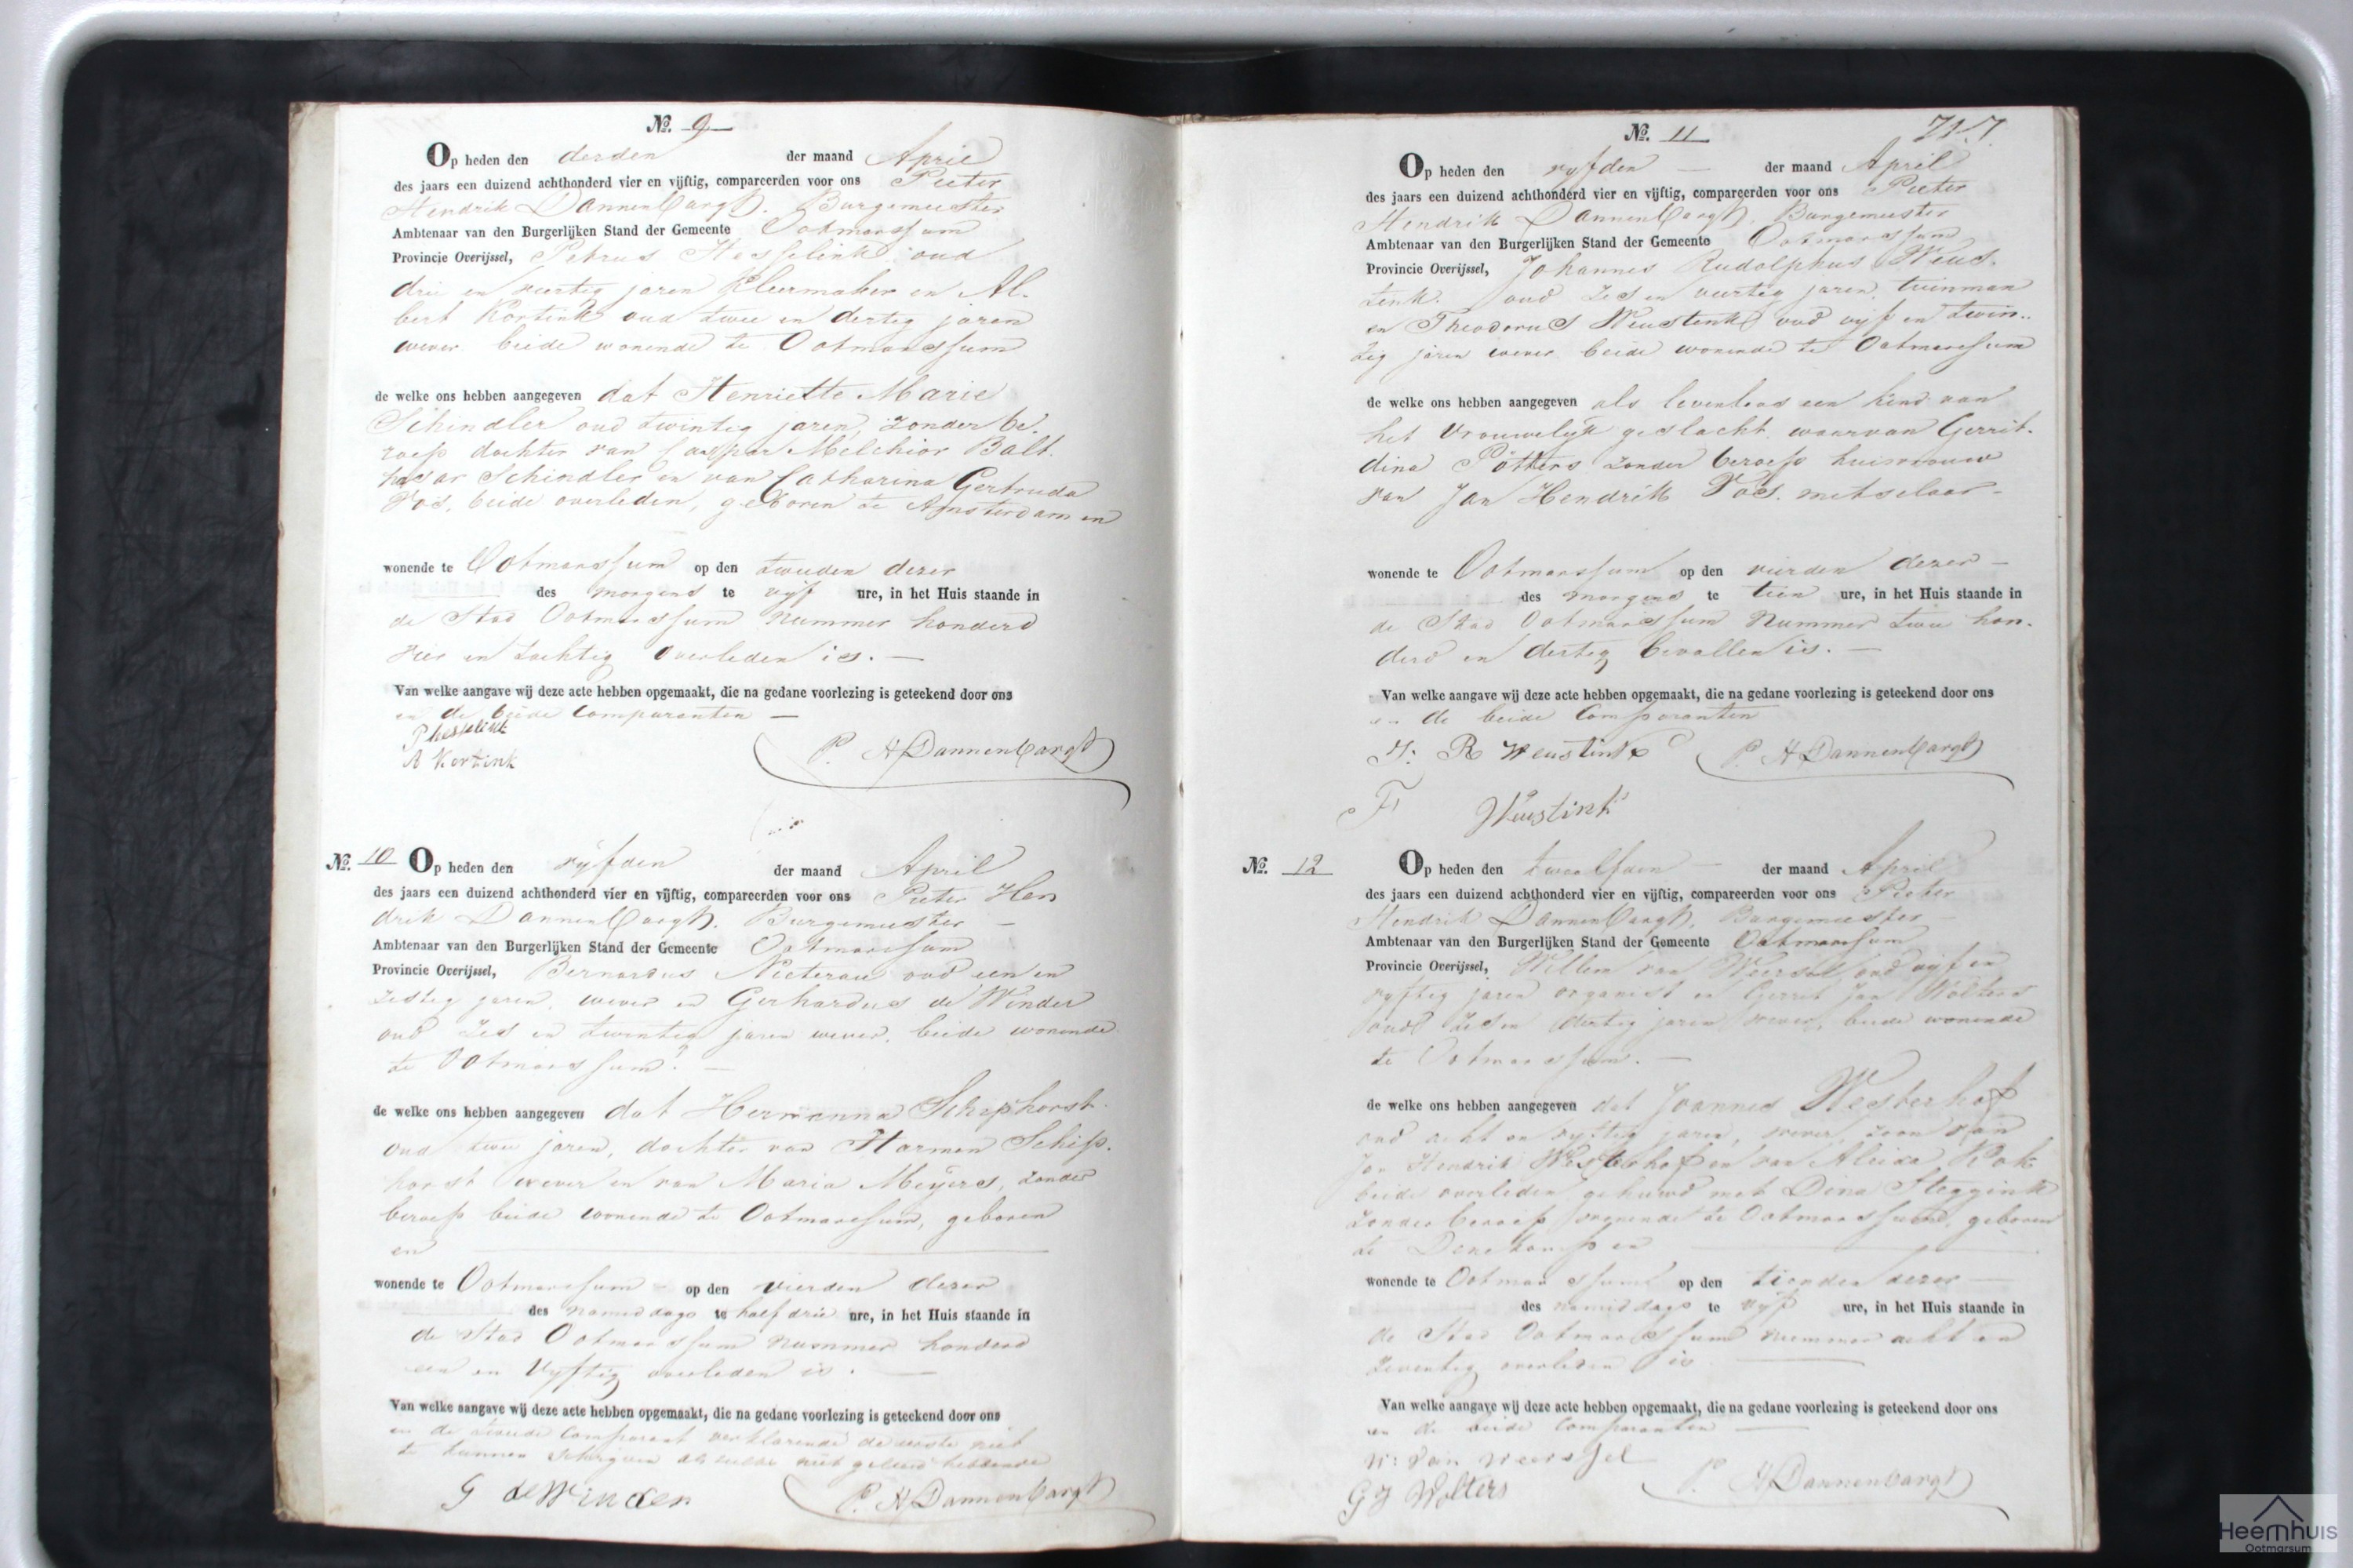 No. 9
Op heden den derden der maand April
des jaars een duizend achthonderd vier en vijftig, compareerden voor ons Pieter
Hendrik Dannenbargh. Burgemeester
Ambtenaar van den Burgerlijken Stand der Gemeente Ootmarssum
Provincie Overijssel, Petrus Hesselink oud
drie en veertig jaren Kleermaker en Al-
bert Kortink oud twee en dertig jaren
wever beide wonende te Ootmarssum
de welke ons hebben aangegeven dat Henriette Marie
Schindler oud twintig jaren, zonder be-
roep dochter van Caspar Melchior Balt-
hasar Schindler en van Catharina Gertruda
Vos, beide overleden, geboren te Amsterdam en
wonende te Ootmarssum op den tweeden dezer
des morgens te vijf ure, in het Huis staande in
de Stad Ootmarssum Nummer honderd
vier en tachtig overleden is. —
Van welke aangave wij deze acte hebben opgemaakt, die na gedane voorlezing is geteekend door ons
en de beide Comparanten —
P hesselink
A Kortink
P. H Dannenbargh
No. 10 Op heden den vijfden der maand April
des jaars een duizend achthonderd vier en vijftig, compareerden voor ons Pieter Hen
drik Dannenbargh. Burgemeester —
Ambtenaar van den Burgerlijken Stand der Gemeente Ootmarssum
Provincie Overijssel, Bernardus oud een en
zestig jaren, wever en Gerhardus de Winder
oud zes en twintig jaren wever, beide wonende
te Ootmarssum. —
de welke ons hebben aangegeven dat Hermanna Schiphorst
oud twee jaren, dochter van Harmen Schip-
horst wever en van Maria Meijers, zonder
beroep beide wonende te Ootmarssum, geboren
en
wonende te Ootmarssum op den vierden dezer
des namiddags te half drie ure, in het Huis staande in
de Stad Ootmarssum nummer honderd
een en vijftig overleden is. —
Van welke aangave wij deze acte hebben opgemaakt, die na gedane voorlezing is geteekend door ons
en de tweede Comparant verklarende de eerste niet
te kunnen schrijven als zulks niet geleerd hebbende
G de Winder
P. H Dannenbargh
No. 11
Op heden den vyfden — der maand April
des jaars een duizend achthonderd vier en vijftig, compareerden voor ons Pieter
Hendrik Dannenbargh. Burgemeester
Ambtenaar van den Burgerlijken Stand der Gemeente Ootmarssum
Provincie Overijssel, Johannes Rudolphus Weus-
tenk. oud zes en veertig jaren, tuinman
en Theodorus Weustenk oud vijf en twin-
tig jaren wever beide wonende te Ootmarssum
de welke ons hebben aangegeven als levenloos een kind van
het vrouwelijk geslacht waarvan Gerrit-
dina Pötters zonder beroep huisvrouw
van Jan Hendrik Vos. metselaar —
wonende te Ootmarssum op den vierden dezer —
des morgens te tien ure, in het Huis staande in
de Stad Ootmarssum Nummer twee hon-
derd en dertig bevallen is. —
Van welke aangave wij deze acte hebben opgemaakt, die na gedane voorlezing is geteekend door ons
en de beide Comparanten
J: R Weustink
P. H Dannenbargh
F Weustink
No. 12 Op heden den twaalfden — der maand April
des jaars een duizend achthonderd vier en vijftig, compareerden voor ons Pieter
Hendrik Dannenbargh, Burgemeester —
Ambtenaar van den Burgerlijken Stand der Gemeente Ootmarssum
Provincie Overijssel, Willem van Weersel oud vijf en
vyftig jaren organist en Gerrit Jan Wolters
oud zes en dertig jaren wever, beide wonende
te Ootmarssum. —
de welke ons hebben aangegeven dat Joannes Westerhof
oud acht en vyftig jaren, wever, zoon van
Jan Hendrik Westerhof en van Aleida Kok
beide overleden gehuwd met Dina Steggink
zonder beroep wonende te Ootmarssum, geboren
te Denekamp en
wonende te Ootmarssum op den tienden dezer —
des namiddags te vijf ure, in het Huis staande in
de Stad Ootmarssum nummer acht en
zeventig overleden is
Van welke aangave wij deze acte hebben opgemaakt, die na gedane voorlezing is geteekend door ons
en de beide Comparanten —
W: van Weersel
P. H Dannenbargh
G J Wolters
Heemhuis
Ootmarsum